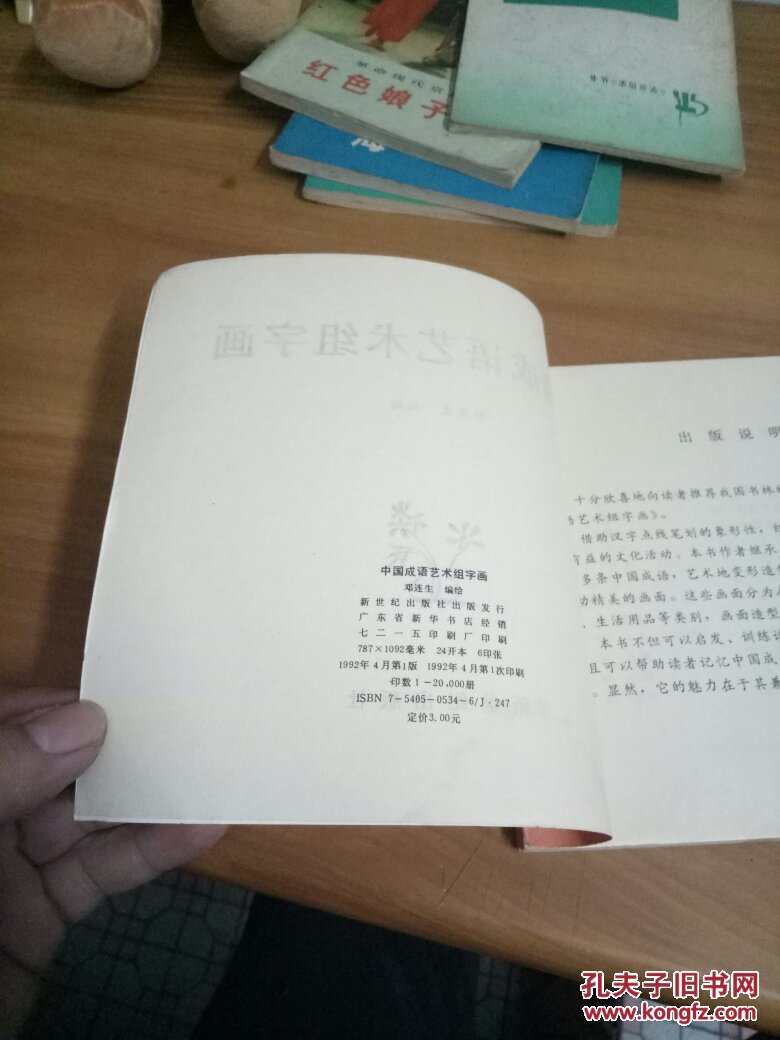 革命现代京
红色娘子
《学点历史》丛书
中国成语艺术组字画
邓连生 编绘
新世纪出版社出版发行
广东省新华书店经销
七二一五印刷厂印刷
787×1092毫米 24开本 6印张
1992年4月第1版 1992年4月第1次印刷
印数1-20,000册
ISBN 7-5405-0534-6/J·247
定价3.00元
出版说明
十分欣喜地向读者推荐我国书林
语艺术组字画》。
借助汉字点线笔划的象形性,
有益的文化活动。本书作者继承
多条中国成语,艺术地变形造
功精美的画面。这些画面分为
、生活用品等类别,画面造型
本书不但可以启发、训练
且可以帮助读者记忆中国成
。显然,它的魅力在于其兼
孔夫子旧书网
www.kongfz.com